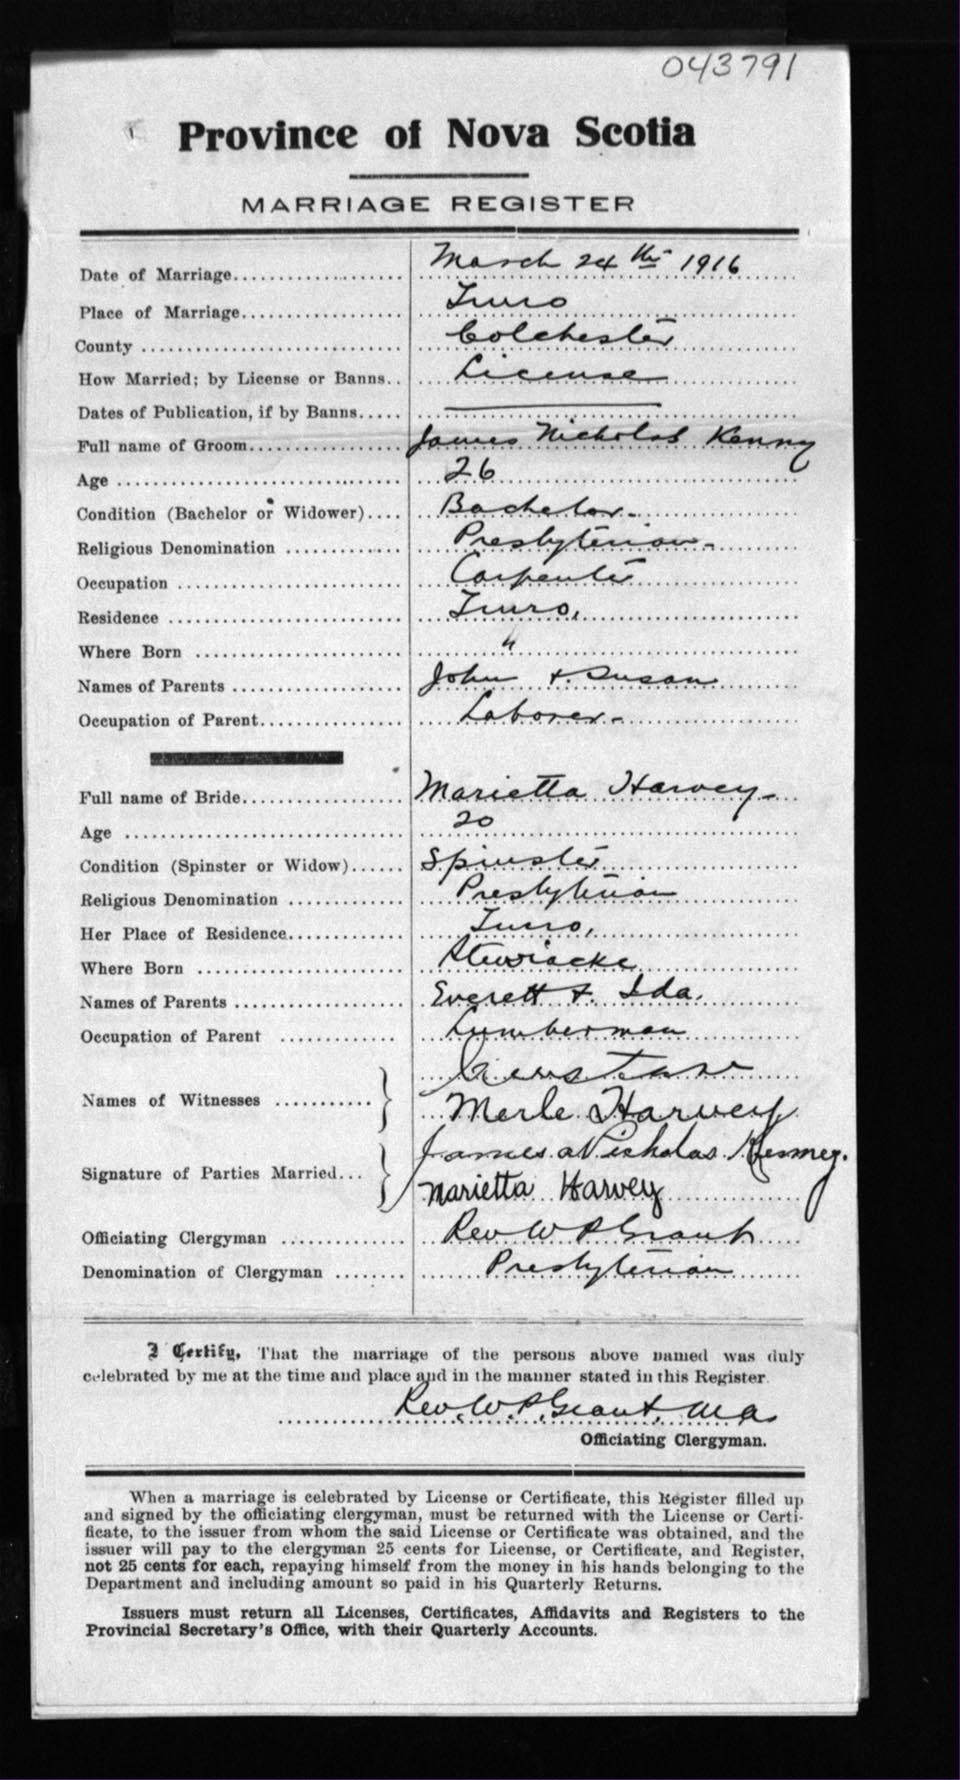 043791
Province of Nova Scotia
MARRIAGE REGISTER
Date of Marriage.................... March 24th 1916
Place of Marriage................... Truro
County ............................. Colchester
How Married; by License or Banns.. License
Dates of Publication, if by Banns.....
Full name of Groom.................. James Nicholas Kenny
Age ................................ 26
Condition (Bachelor or Widower).... Bachelor-
Religious Denomination ............. Presbyterian-
Occupation ......................... Carpenter
Residence .......................... Truro,
Where Born ......................... "
Names of Parents ................... John + Susan
Occupation of Parent................ Laborer-
Full name of Bride.................. Marietta Harvey-
Age ................................ 20
Condition (Spinster or Widow)...... Spinster
Religious Denomination ............. Presbyterian
Her Place of Residence............. Truro,
Where Born ......................... Stewiacke
Names of Parents ................... Everett + Ida.
Occupation of Parent ............. Lumberman
Names of Witnesses ............
Merle Harvey
Signature of Parties Married... James Nicholas Kenney.
Marietta Harvey
Officiating Clergyman .............. Rev W P Grant
Denomination of Clergyman ........ Presbyterian
I Certify, That the marriage of the persons above named was duly
celebrated by me at the time and place and in the manner stated in this Register.
Rev. W. P. Grant, M.A.
Officiating Clergyman.
When a marriage is celebrated by License or Certificate, this Register filled up
and signed by the officiating clergyman, must be returned with the License or Certi-
ficate, to the issuer from whom the said License or Certificate was obtained, and the
issuer will pay to the clergyman 25 cents for License, or Certificate, and Register,
not 25 cents for each, repaying himself from the money in his hands belonging to the
Department and including amount so paid in his Quarterly Returns.
Issuers must return all Licenses, Certificates, Affidavits and Registers to the
Provincial Secretary's Office, with their Quarterly Accounts.